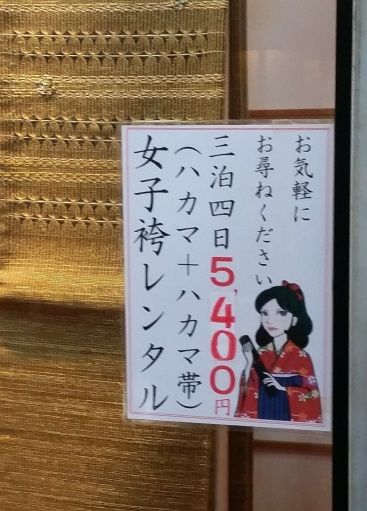 お気軽に
お尋ねください
三泊四日5,400円
(ハカマ+ハカマ帯)
女子袴レンタル